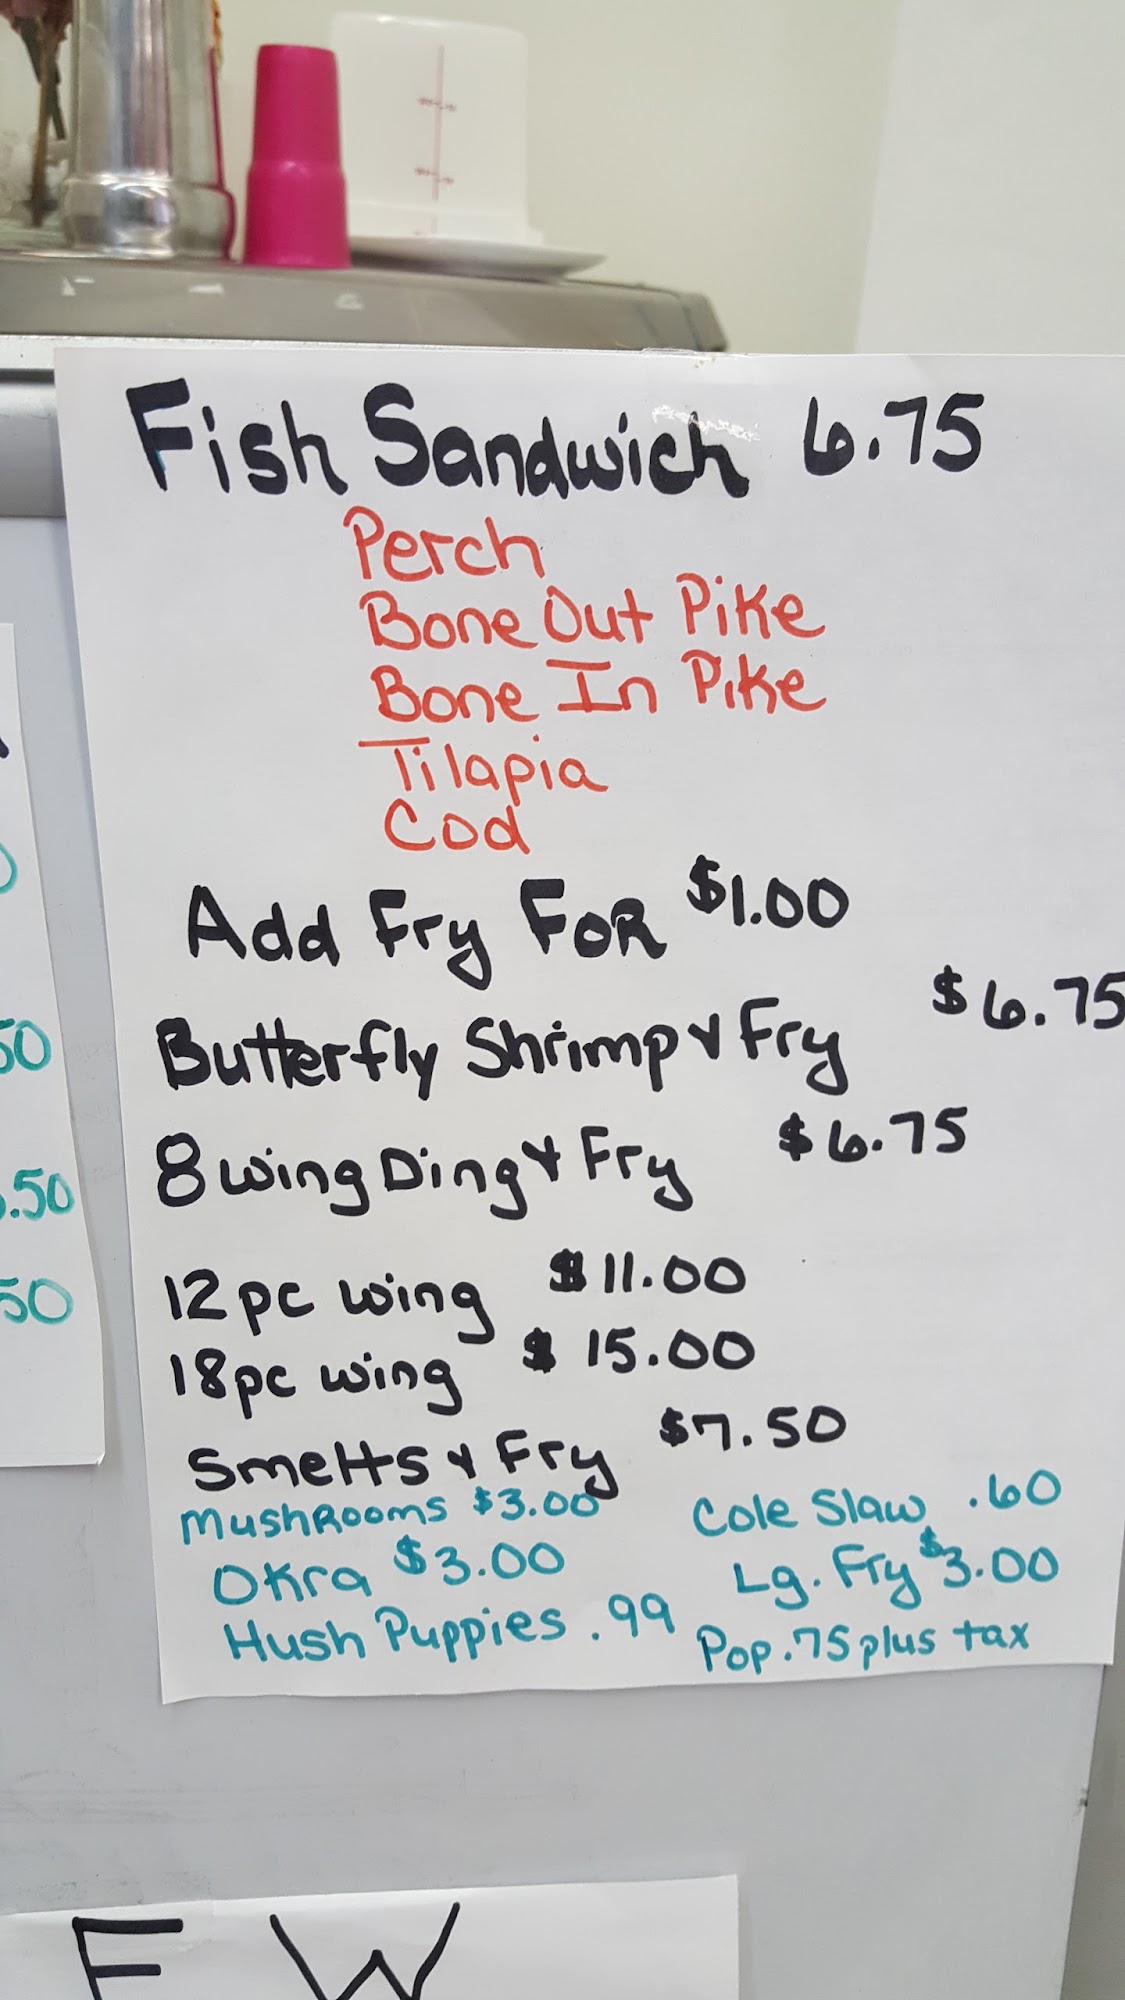 Fish Sandwich 6.75
Perch
Bone Out Pike
Bone In Pike
Tilapia
Cod
Add Fry FOR $1.00
Butterfly Shrimp & Fry $6.75
8 wing Ding & Fry $6.75
12pc wing $11.00
18pc wing $15.00
Smelts & Fry $7.50
MushRooms $3.00
Cole Slaw .60
Okra $3.00
Lg. Fry $3.00
Hush Puppies .99
Pop .75 plus tax
50
.50
50
F W